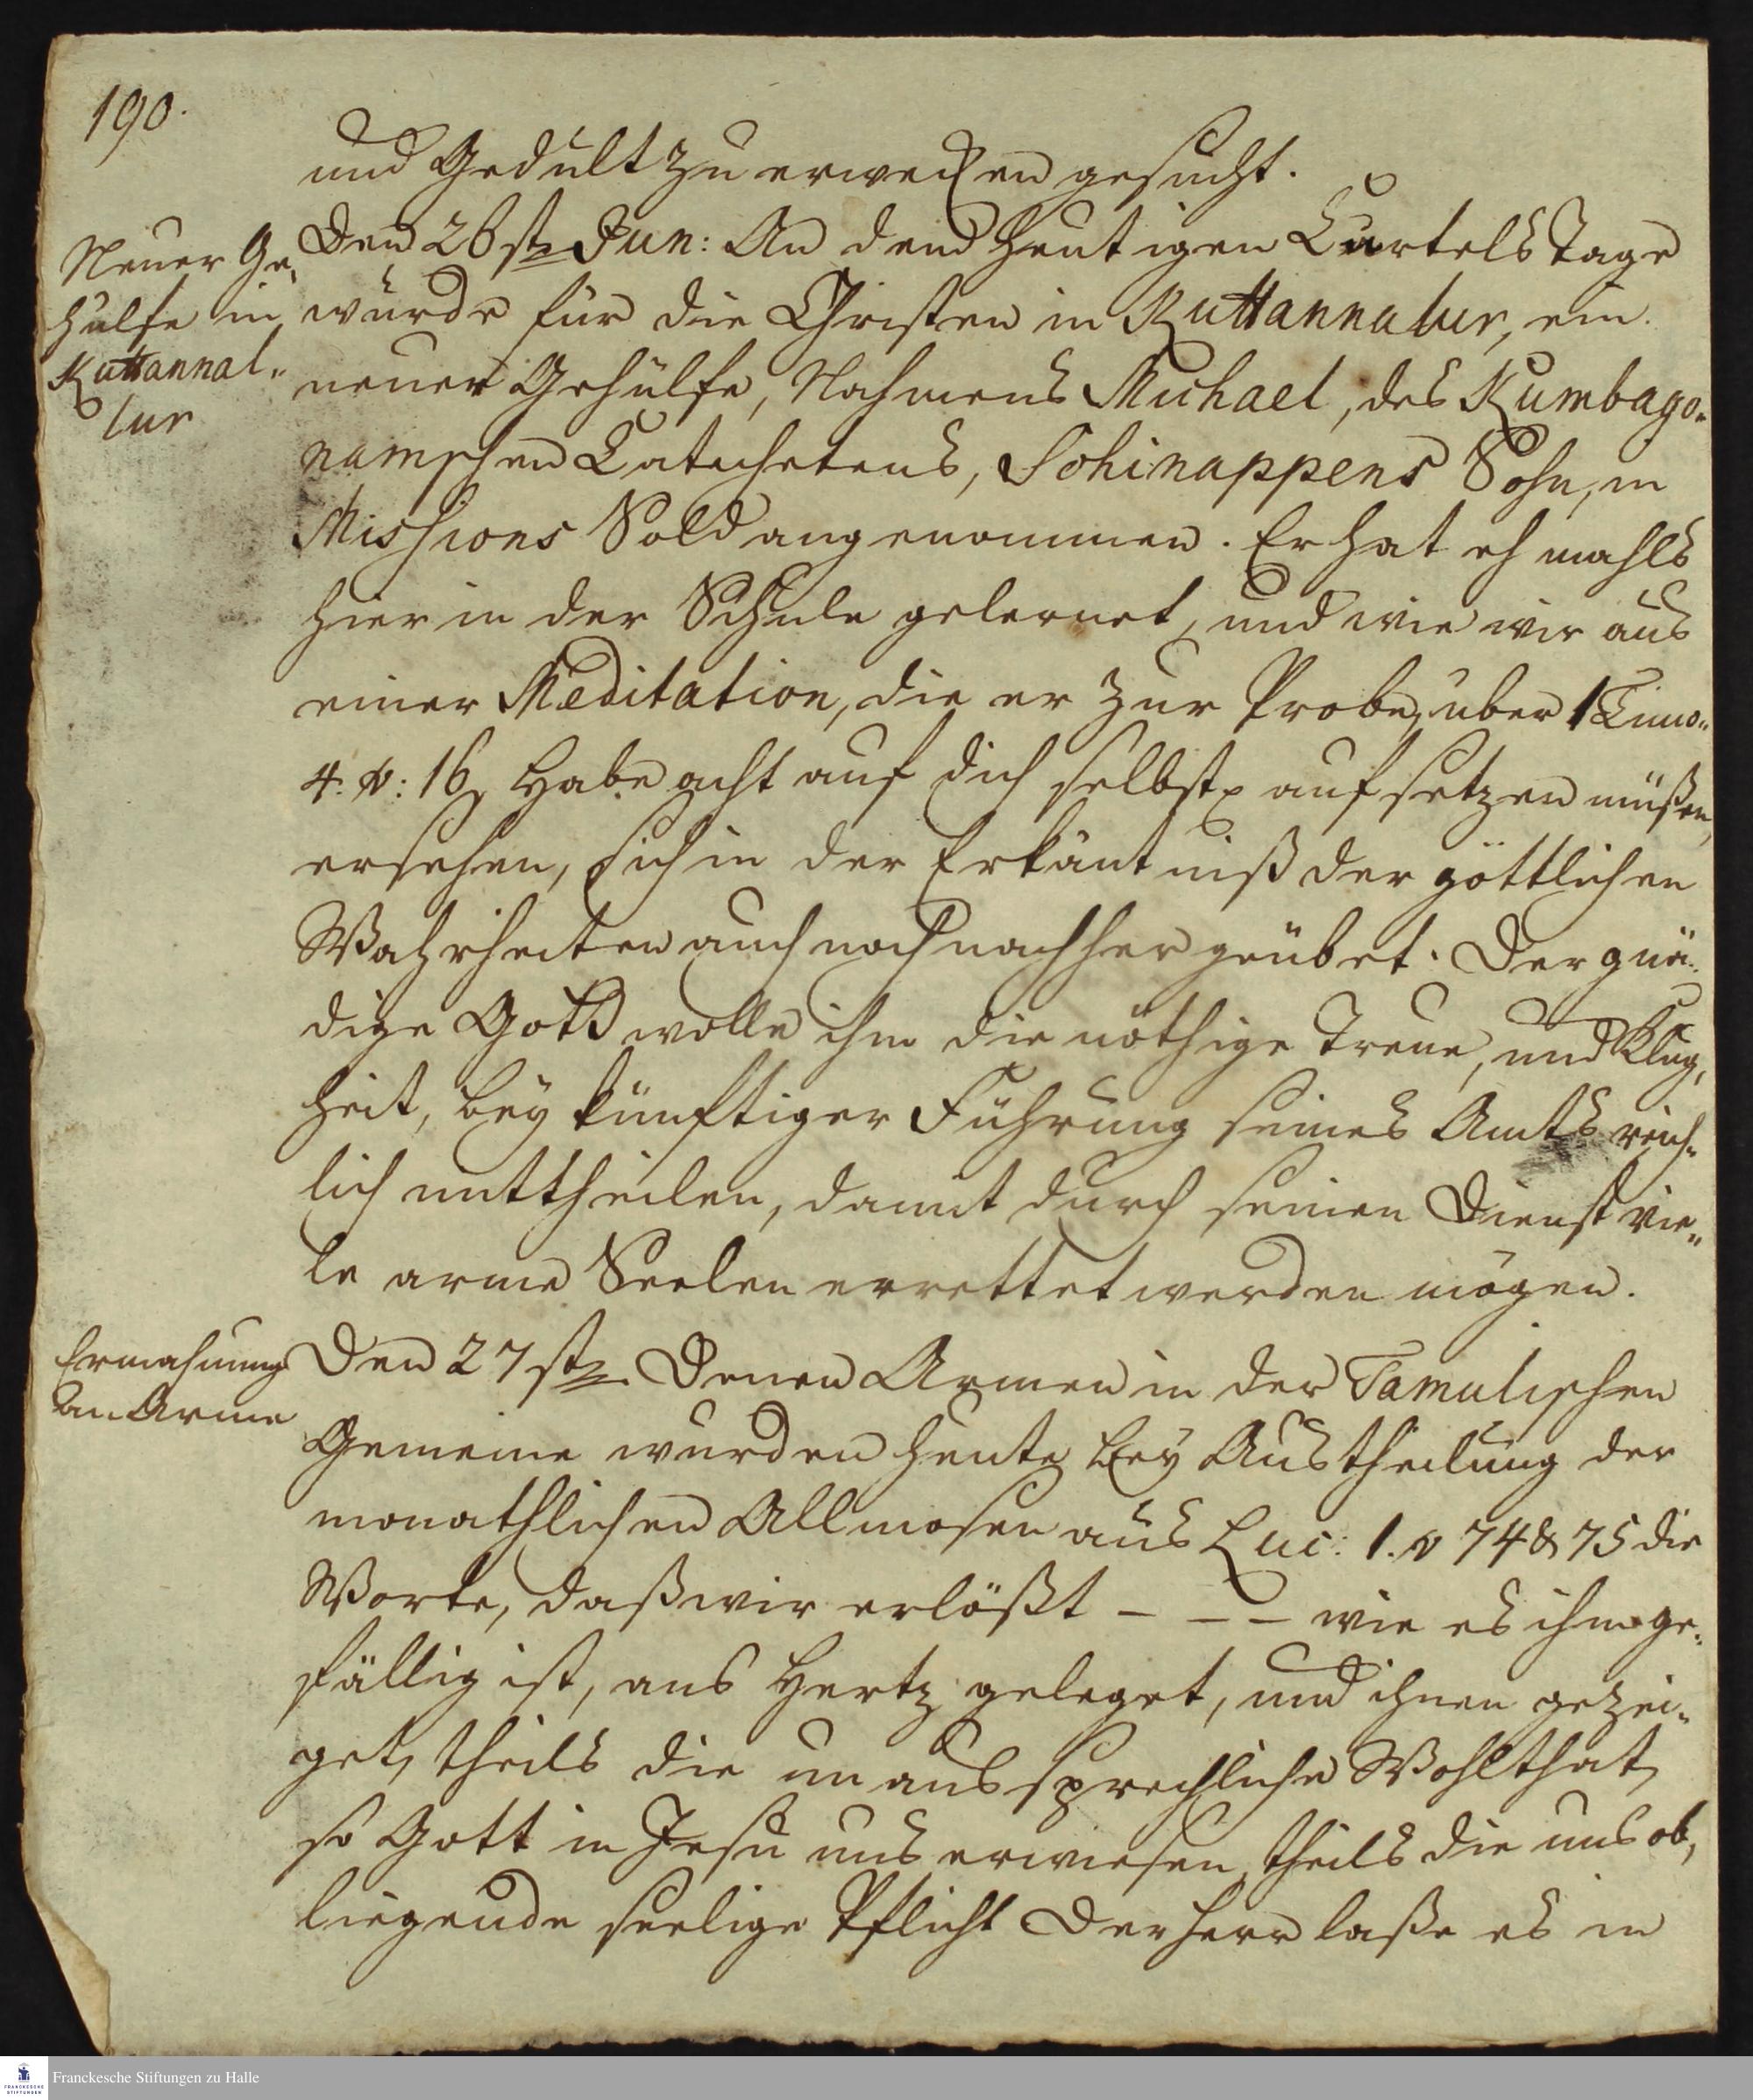 190.
und Gedult zu erwecken gesucht.
Neuer Ge„
hülfe in
Kuttannal„
lur
Den 26st. Jun: An dem heutigen Quartels Tage
wurde für die Christen in Kuttannalur, ein
neuer Gehülfe, Nahmens Michael, des Kumbago„
namschen Catechetens, Schinappens Sohn, in
Missions Sold angenommen. Er hat ehmahls
hier in der Schule gelernet, und wie wir aus
einer Meditation, die er zur Probe, über 1 Timo„
4. v: 16, Habe acht auf dich selbst aufsetzen müßen,
ersehen, sich in der Erkäntniß der göttlichen
Wahrheiten auch noch nachher geübet. Der gnä„
dige Gott wolle ihm die nöthige Treue, und Klug„
heit, bey künftiger Führung seines Amts reich„
lich mittheilen, damit durch seinen Dienst vie„
le arme Seelen errettet werden mögen.
Ermahnung
an Arme
Den 27st. Denen Armen in der Tamulischen
Gemeine wurden heute bey Austheilung der
monathlichen Allmosen aus Luc: 1. v 74 & 75 die
Worte, daß wir erlößt – – – wie es ihm ge„
fällig ist, ans Hertz geleget, und ihnen gezei„
get, theils die unaussprechliche Wohlthat,
so Gott in Jesu uns erwiesen, theils die uns ob„
liegende seelige Pflicht Der Herr laße es in
Franckesche Stiftungen zu Halle
FRANCKESCHE
STIFTUNGEN